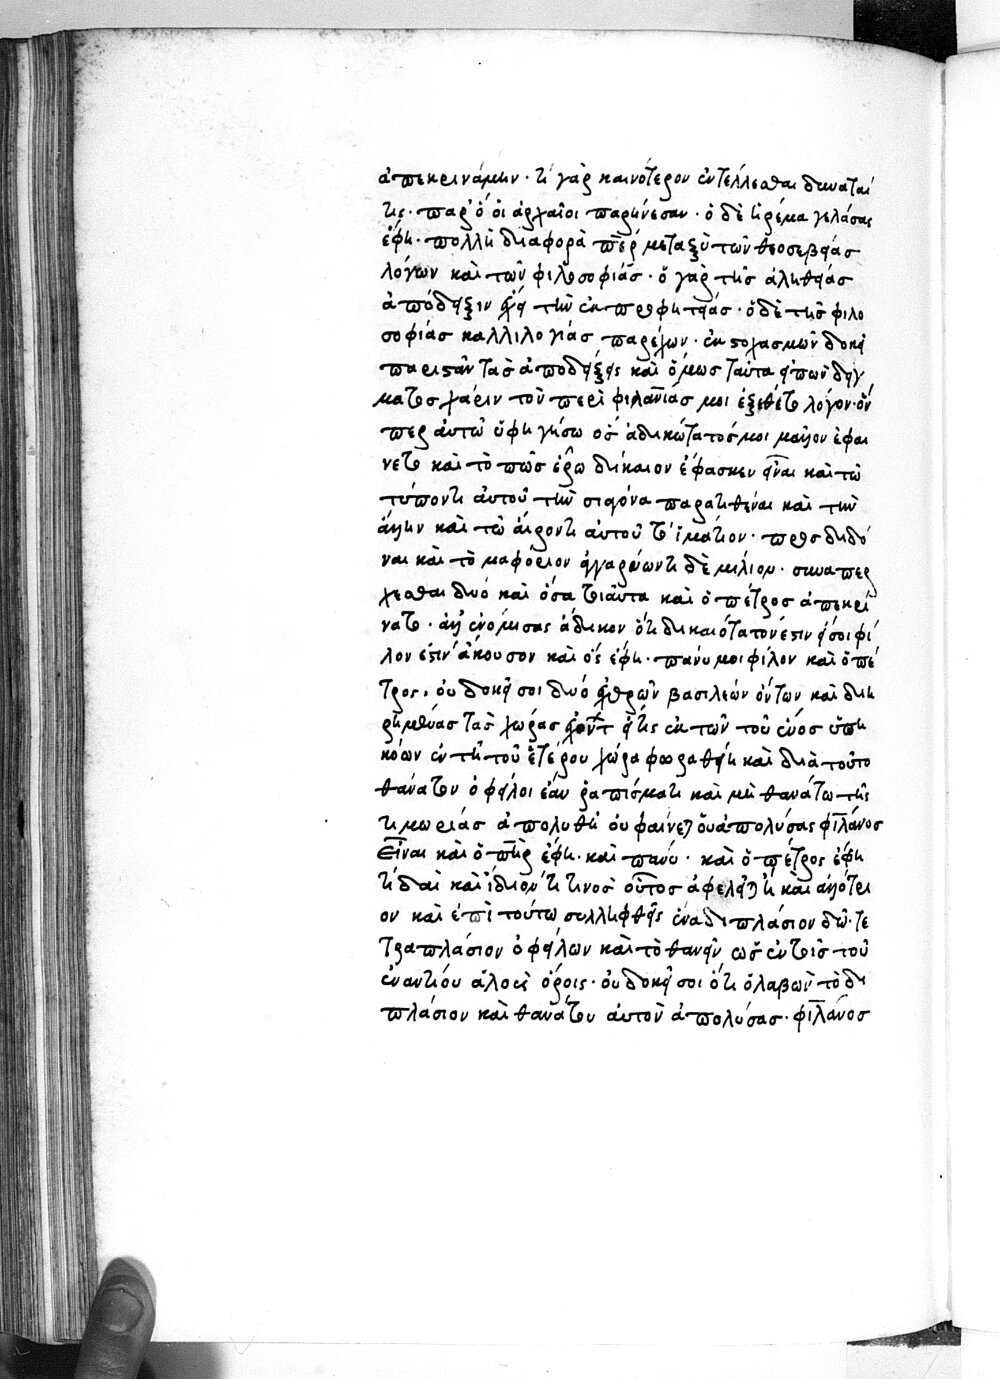 ἀπεκρινάμην· τί γὰρ καινότερον ἐντέλλεσθαι δύναταί
τις· παρ' ὃ οἱ ἀρχαῖοι παρήνεσαν· ὁ δὲ ἠρέμα γελάσας
ἔφη· πολλὴ διαφορὰ πὲρ μεταξὺ τῶν θεοσεβείας
λόγων καὶ τῶν φιλοσοφίας· ὁ γὰρ τῆς ἀληθείας
ἀπόδειξιν ἔχει τὴν ἐκ προφητείας· ὁ δὲ τῆς φιλο
σοφίας καλλιλογίας παρέχων· ἐκ στοχασμῶν δοκεῖ
παριστᾶν τὰς ἀποδείξεις καὶ ὅμως ταῦτα εἰπὼν δείγ
ματος χάριν τὸν περὶ φιλανίας μοι ἐξέθετο λόγον· ὅν
περ αὐτῷ ὑφηγήσω ὃς ἀδικώτατός μοι μᾶλλον ἐφαί
νετο καὶ τὸ πῶς ἐρῶ δίκαιον ἔφασκεν εἶναι καὶ τῷ
τύποντι αὐτοῦ τὴν σιαγόνα παρατιθέναι καὶ τὴν
ἄλλην καὶ τῷ αἴροντι αὐτοῦ τὸ ἱμάτιον· προσδιδό
ναι καὶ τὸ μαφόριον ἀγγαρεύοντι δὲ μίλιον· συναπέρ
χεσθαι δυό καὶ ὅσα τοιαῦτα καὶ ὁ πέτρος ἀπεκρί
νατο· ἀλλ' ἐνόμισας ἄδικον ὅτι δικαιότατον ἐστιν εἴ σοι φί
λον ἐστιν ἄκουσον καὶ ὃς ἔφη· πάνυ μοι φίλον καὶ ὁ πέ
τρος, οὐ δοκεῖ σοι δυό ἐχθρῶν βασιλεών ὄντων καὶ διη
ρημένας τὰς χώρας ἐχόντ εἴ τις ἐκ τῶν τοῦ ἑνὸς ὑπη
κόων ἐν τῇ τοῦ ἑτέρου χώρα φωραθείη καὶ διὰ τοῦτο
θάνατον ὀφείλοι ἐὰν ῥαπίσματι καὶ μὴ θανάτω τῆς
τιμωρίας ἀπολυθῇ οὐ φαίνεται ὁ ἀπολύσας φιλάνος
εἶναι καὶ ὁ πὴρ ἔφη· καὶ πάνυ· καὶ ὁ πέτρος ἔφη
τί δαὶ καὶ ἴδιον τι τινος οὗτος ἀφέληταί τι καὶ ἀλλότρι
ον καὶ ἐπὶ τούτω συλληφθεὶς ἐὰν διπλάσιον δῷ· τε
τραπλάσιον ὀφείλων καὶ τὸ θανεῖν ὡς ἐν τοῖς τοῦ
ἐναντίου ἁλοὺς ὅροις· οὐ δοκεῖ σοι ὅτι ὁ λαβὼν τὸ δι
πλάσιον καὶ θανάτου αὐτὸν ἀπολύσας· φιλάνος